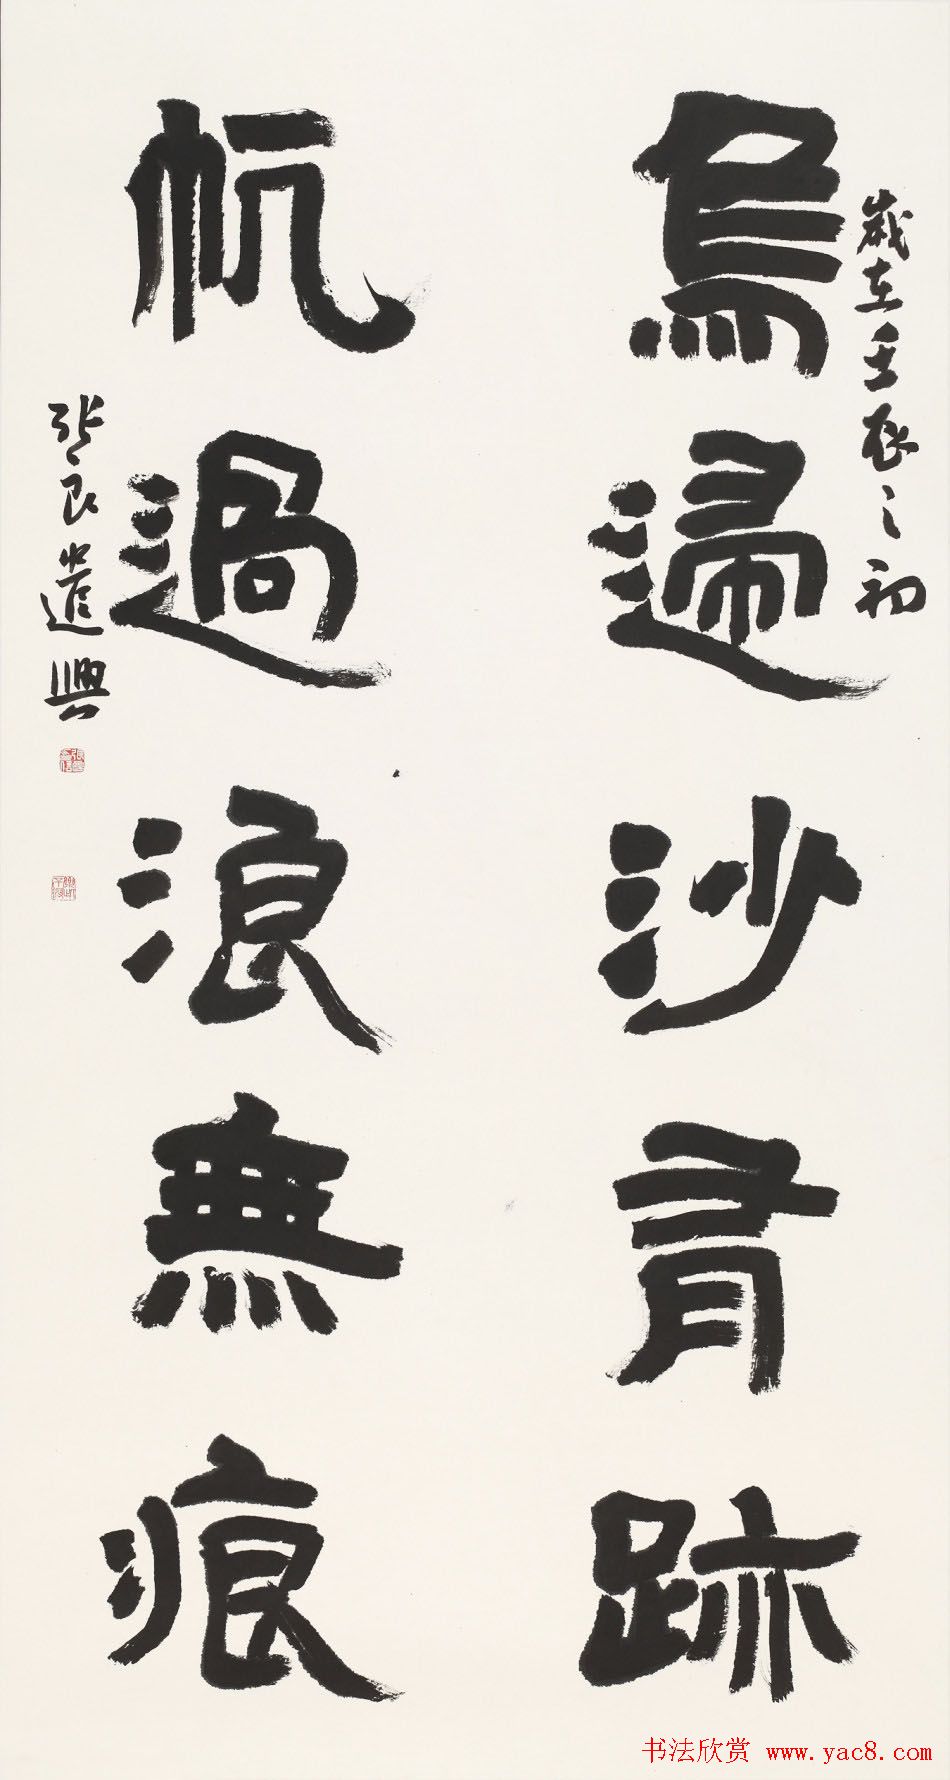 歲在壬辰之初
鳥歸沙有跡
帆過浪無痕
張良遣興
书法欣赏 www.yac8.com